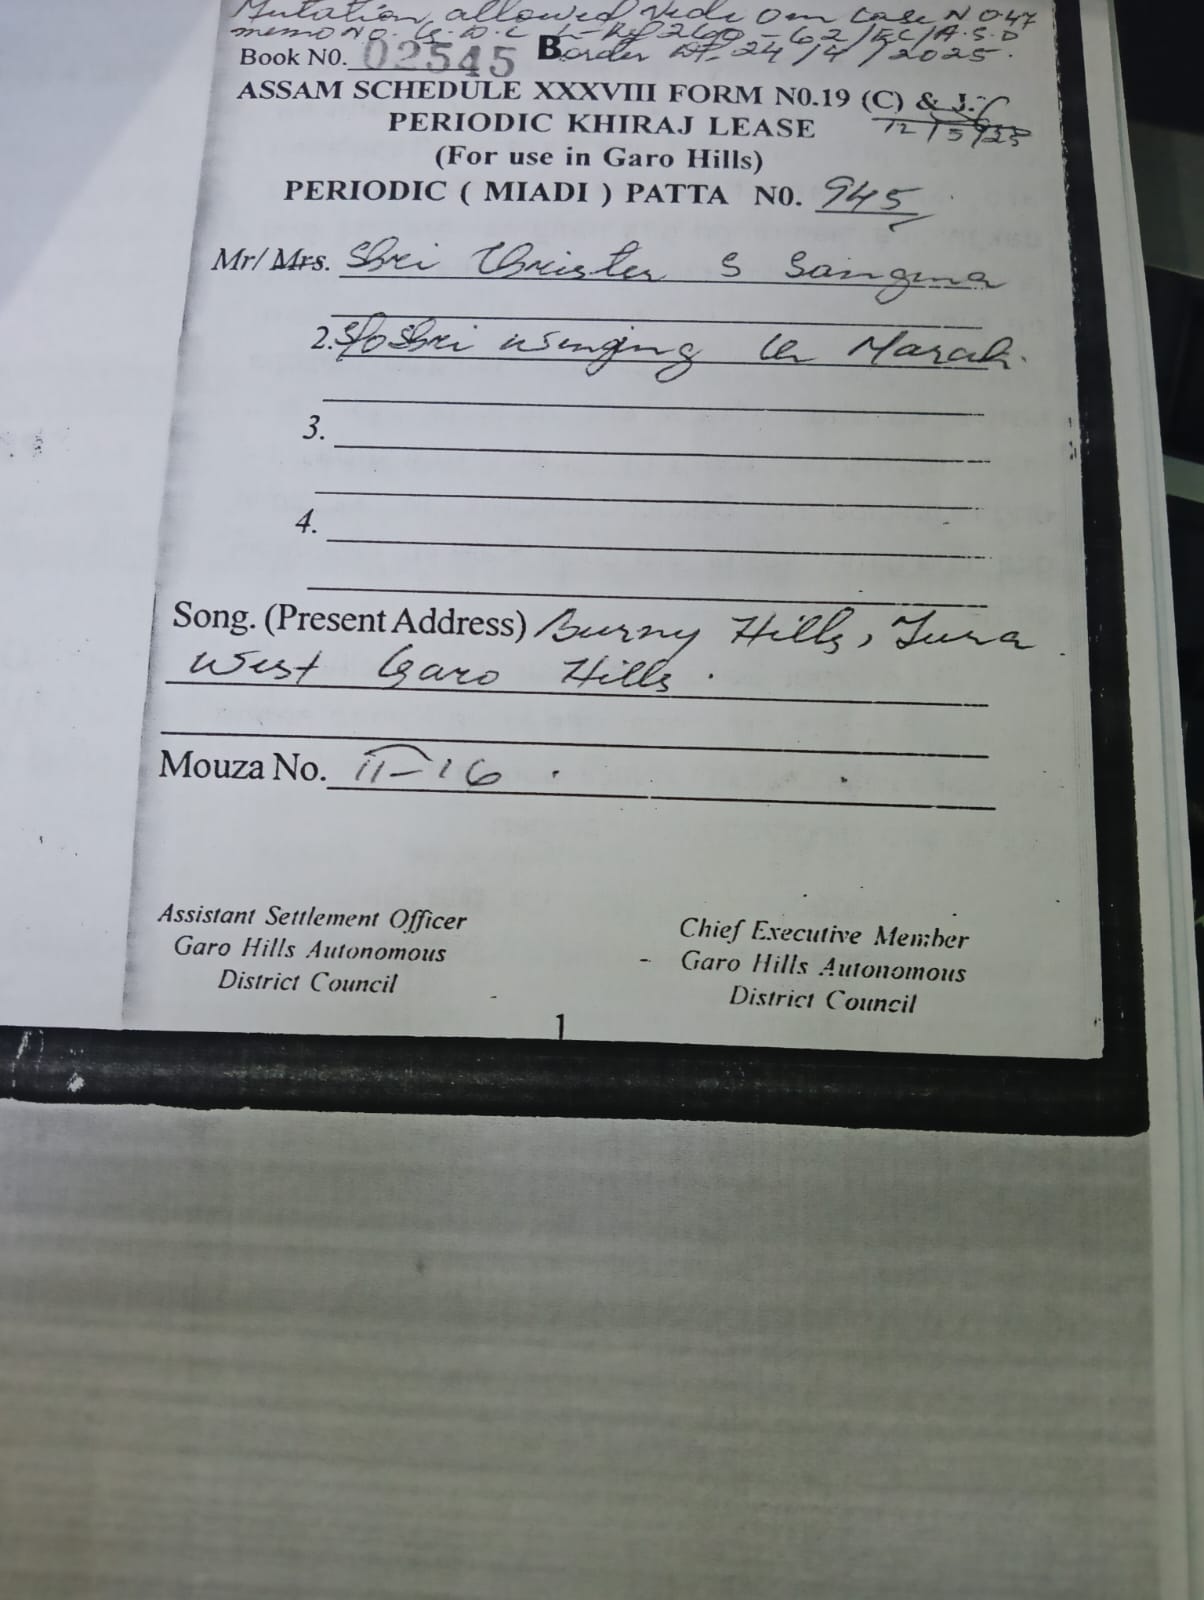 Mutation allowed vide Om Case No 47
memo No. G.D.C L-R/ 2600-62/EC/A.S.D
Book N0. 02545 Border Dt. 24/4/2025.
ASSAM SCHEDULE XXXVIII FORM N0.19 (C) & J.
12/5/25
PERIODIC KHIRAJ LEASE
(For use in Garo Hills)
PERIODIC ( MIADI ) PATTA N0. 945
Mr/ Mrs. Shri S Sangma
2. S/o Shri Marak.
3.
4.
Song. (Present Address) Burny Hills, Tura
West Garo Hills.
Mouza No. II-16
Assistant Settlement Officer
Garo Hills Autonomous
District Council
Chief Executive Member
Garo Hills Autonomous
District Council
1